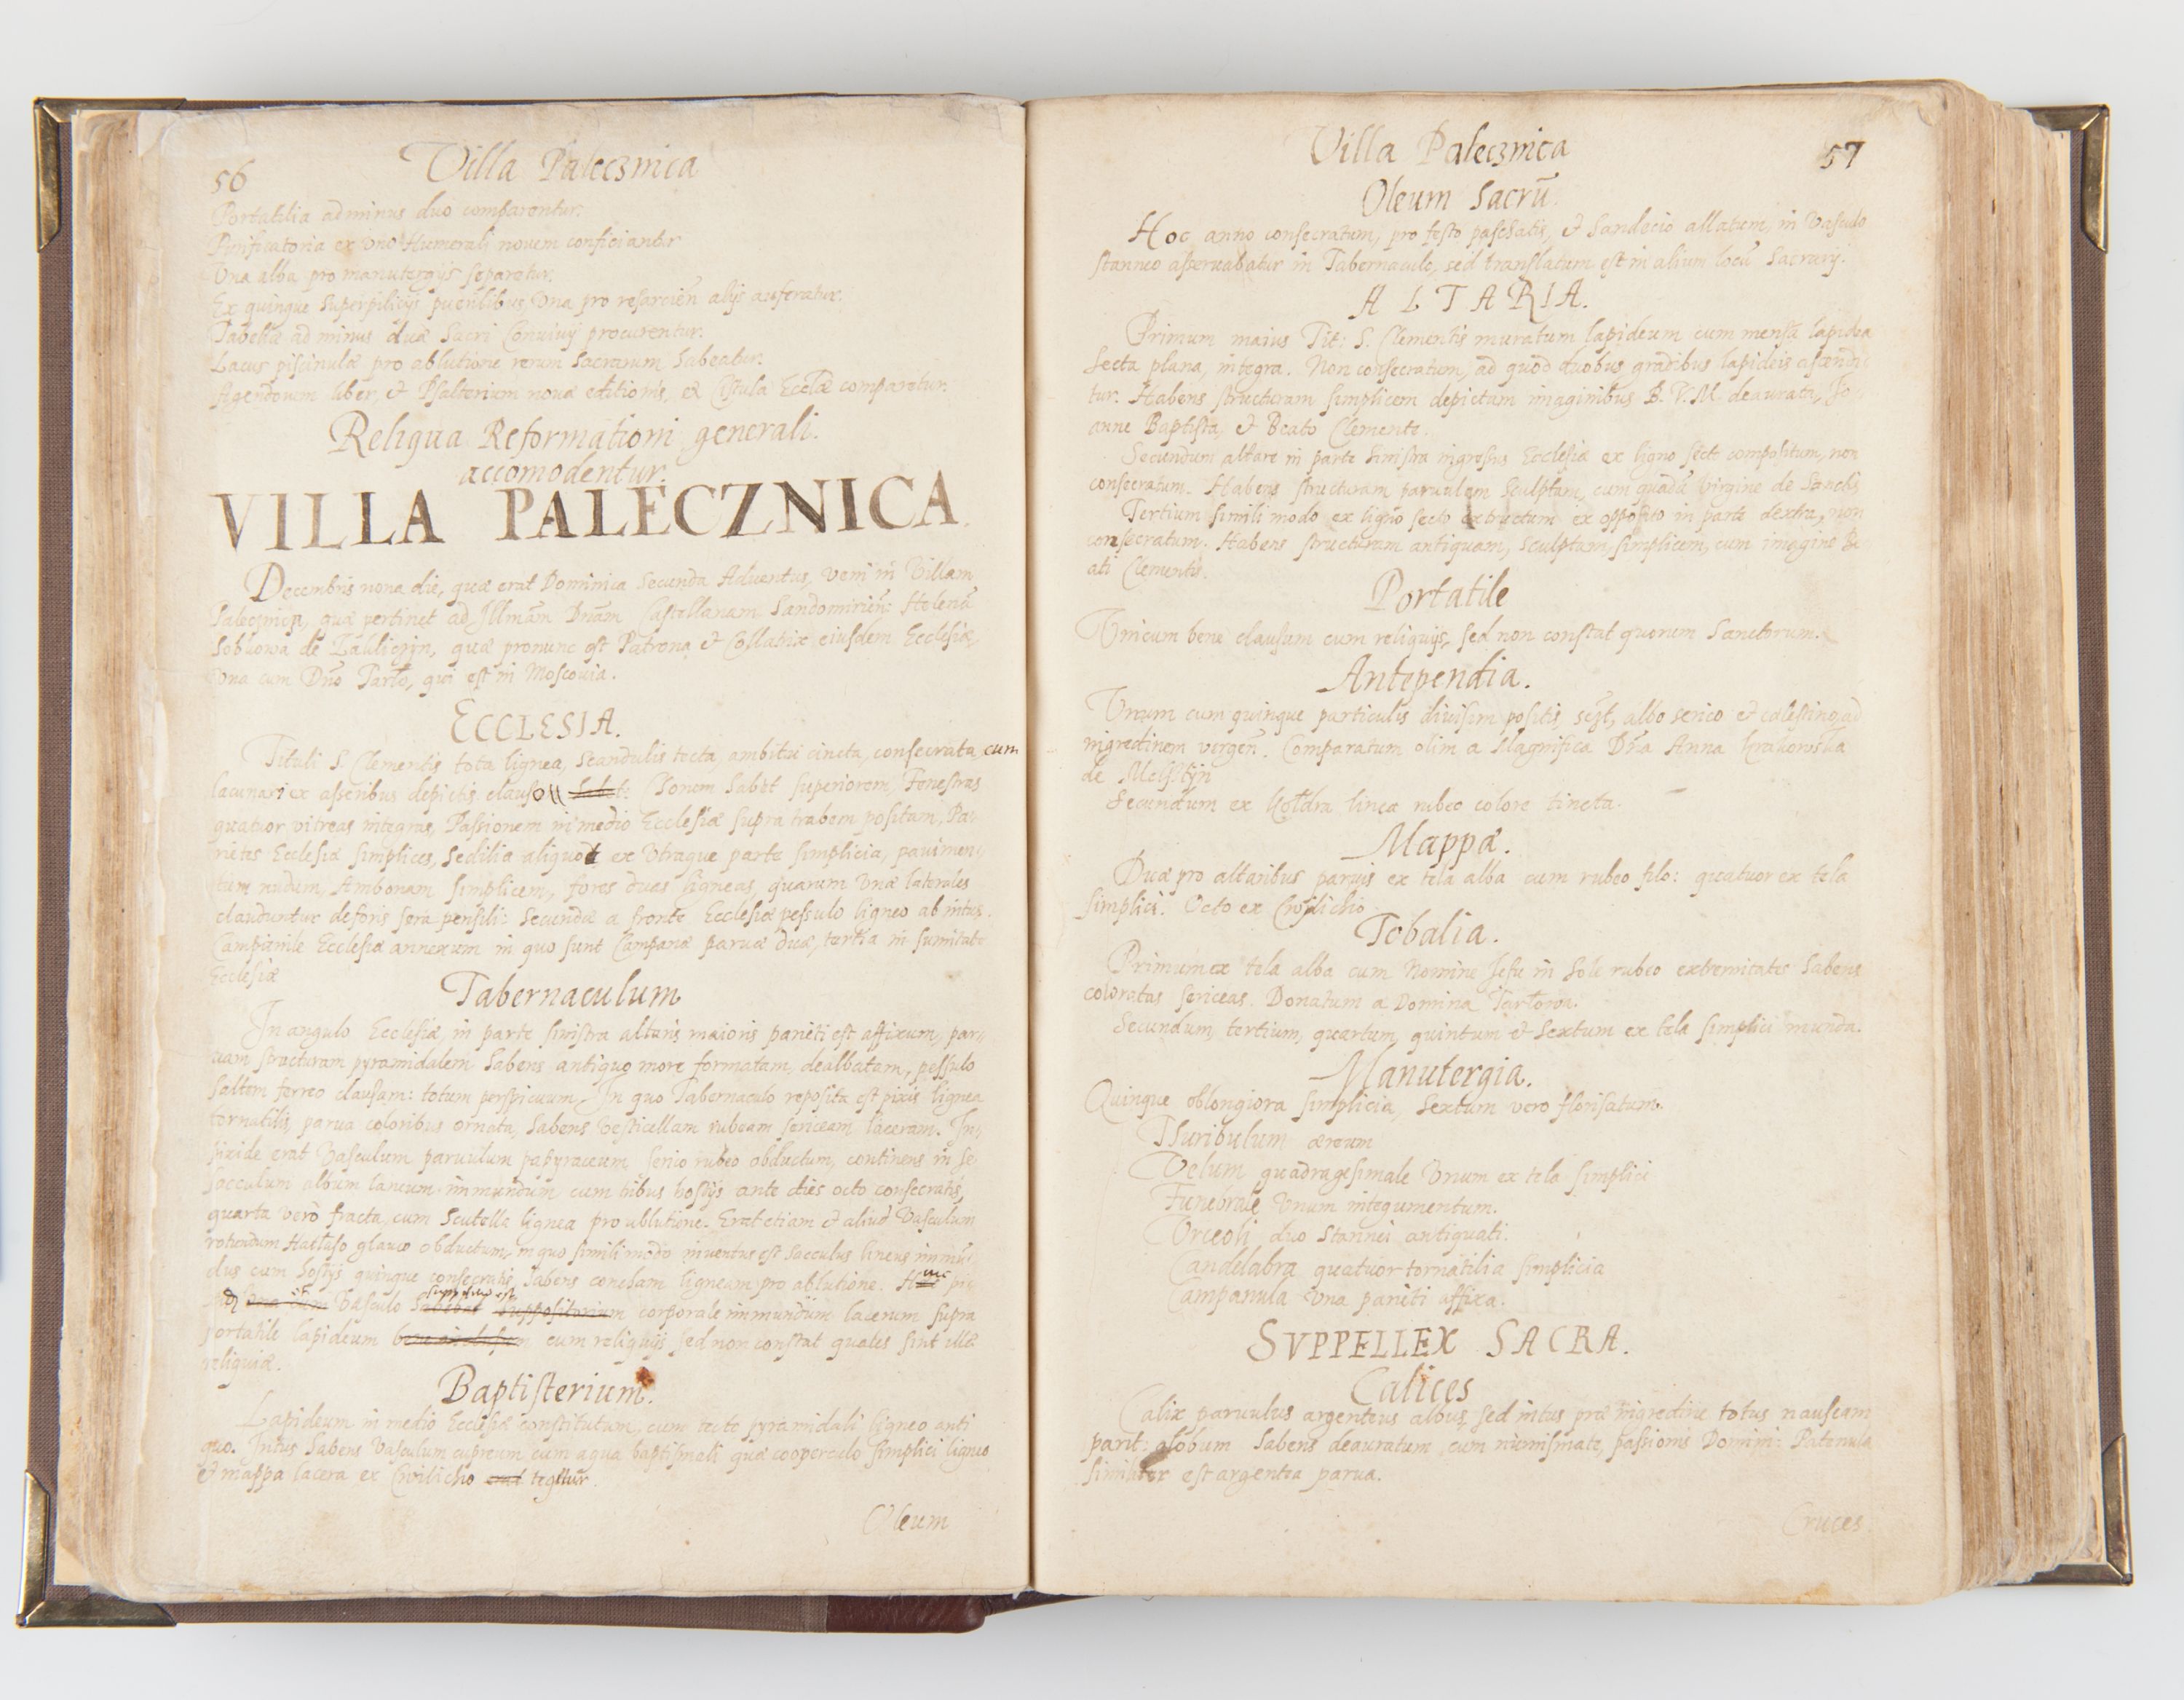 56
Villa Palecznica
Portatilia ad minus duo comparentur.
Purificatoria ex uno Humerali novem conficiantur
Una alba pro manutergijs separetur.
Ex quinque superpilicijs puerilibus, Una pro resarcien̄ alijs auferatur.
Tabellæ ad minus duæ Sacri Convivij procurentur.
Lacus piscinulæ pro ablutione rerum Sacrarum habeatur.
Agendorum liber, et Psalterium novæ editionis, ex Cistula Eccl̄æ comparetur.
Reliqua Reformationi generali.
accomodentur.
VILLA PALECZNICA.
Decembris nona die, quæ erat Dominica Secunda Adventus, veni in Villam
Palecznica, quæ pertinet ad Illmām Dnām Castellanam Sandomirien̄: Helenā
Sobkowa de Zakliczyn, quæ pronunc est Patrona et Collatrix eiusdem Ecclesiæ,
Una cum Dn̄o Tarło, qui est in Moscovia.
ECCLESIA.
Tituli S. Clementis tota lignea, scandulis tecta, ambitu cincta, consecrata, cum
lacunari ex asseribus depictis clauso Chorum habet superiorem, Fenestras
quatuor vitreas integras, Passionem in medio Ecclesiæ supra trabem positam, Pa-
rietes Ecclesiæ simplices, Sedilia aliquot ex utraque parte simplicia, pavimen-
tum nudum, Ambonam simplicem, fores duas ligneas, quarum unæ laterales
clauduntur deforis sera pensili: Secundæ a fronte Ecclesiæ pessulo ligneo ab intus.
Campanile Ecclesiæ annexum in quo sunt Campanæ parvæ duæ, tertia in sumitate
Ecclesiæ
Tabernaculum
In angulo Ecclesiæ, in parte sinistra altaris maioris parieti est affixum, par-
vam structuram pyramidalem habens antiquo more formatam, dealbatam, pessulo
saltem ferreo clausam: totum perspicuum. In quo Tabernaculo reposita est pixis lignea
tornatilis, parva coloribus ornata, habens vesticellam rubeam sericeam laceram. In
pixide erat Vasculum parvulum papyraceum serico rubeo obductum, continens in se
sacculum album laneum immundum cum tribus hostijs ante dies octo consecratis,
quarta verò fracta, cum Scutella lignea pro ablutione. Erat etiam et aliud Vasculum
rotundum Hatłaso glauco obductum, in quo simili modo inventus est sacculus lineus immū-
dus cum hostijs quinque consecratis, habens concham ligneam pro ablutione. Huic pi-
una cum Vasculo habebat suppositum est suppositorium corporale immundum lacerum supra
portatile lapideum cum reliquijs sed non constat quales sint illæ
reliquiæ.
Baptisterium.
Lapideum in medio Ecclesiæ constitutum, cum tecto pyramidali ligneo anti
quo. Intus habens Vasculum cupreum cum aqua baptismali quæ cooperculo simplici ligneo
et mappa lacera ex Cwilicho erat tegitur.
Oleum
Villa Palecznica
57
Oleum Sacrū.
Hoc anno consecratum, pro festo paschatis, et Sandecio allatum, in Vasculo
stanneo asservabatur in Tabernaculo, sed translatum est in alium locū Sacrarij.
ALTARIA.
Primum maius Tit: S. Clementis muratum lapideum cum mensa lapidea
Secta plana, integra. Non consecratum, ad quod duobus gradibus lapideis ascendi-
tur. Habens structuram simplicem depictam imaginibus B. V. M. deaurata, Jo-
anne Baptista, et Beato Clemente.
Secundum altare in parte Sinistra ingressus Ecclesiæ ex ligno secto compositum, non
consecratum. Habens structuram parvulam Sculptam, cum quadā Virgine de Sanctis
Tertium simili modo ex ligno secto extructum ex opposito in parte dextra, non
consecratum. Habens structuram antiquam, Sculptam, simplicem, cum imagine Be
ati Clementis.
Portatile
Unicum bene clausum cum reliquijs, sed non constat quorum Sanctorum.
Antependia.
Unum cum quinque particulis divisim positis, scz̄t, albo serico et cœlestino, ad
nigredinem vergen̄. Comparatum olim a Magnifica Dn̄a Anna Krakowska
de Melsztyn
Secundum ex Kołdra linea rubeo colore tincta.
Mappæ.
Duæ pro altaribus parvis ex tela alba cum rubeo filo: quatuor ex tela
simplici. Octo ex Cwilicho
Tobalia.
Primum ex tela alba cum Nomine Jesu in Sole rubeo extremitates habens
coloratas sericeas. Donatum a Domina Tarłowa.
Secundum, tertium, quartum, quintum et Sextum ex tela simplici munda.
Manutergia.
Quinque oblongiora simplicia, Sextum vero florisatum.
Thuribulum æreum
Velum quadragesimale Unum ex tela simplici
Funebrale Unum integumentum.
Urceoli duo Stannei antiquati.
Candelabra quatuor tornatilia simplicia
Campanula Una parieti affixa.
SVPPELLEX SACRA.
Calices
Calix parvulus argenteus albus, sed intus præ nigredine totus nauseam
parit: globum habens deauratum, cum numismate, passionis Domini: Patenula
similiter est argentea parva.
Cruces